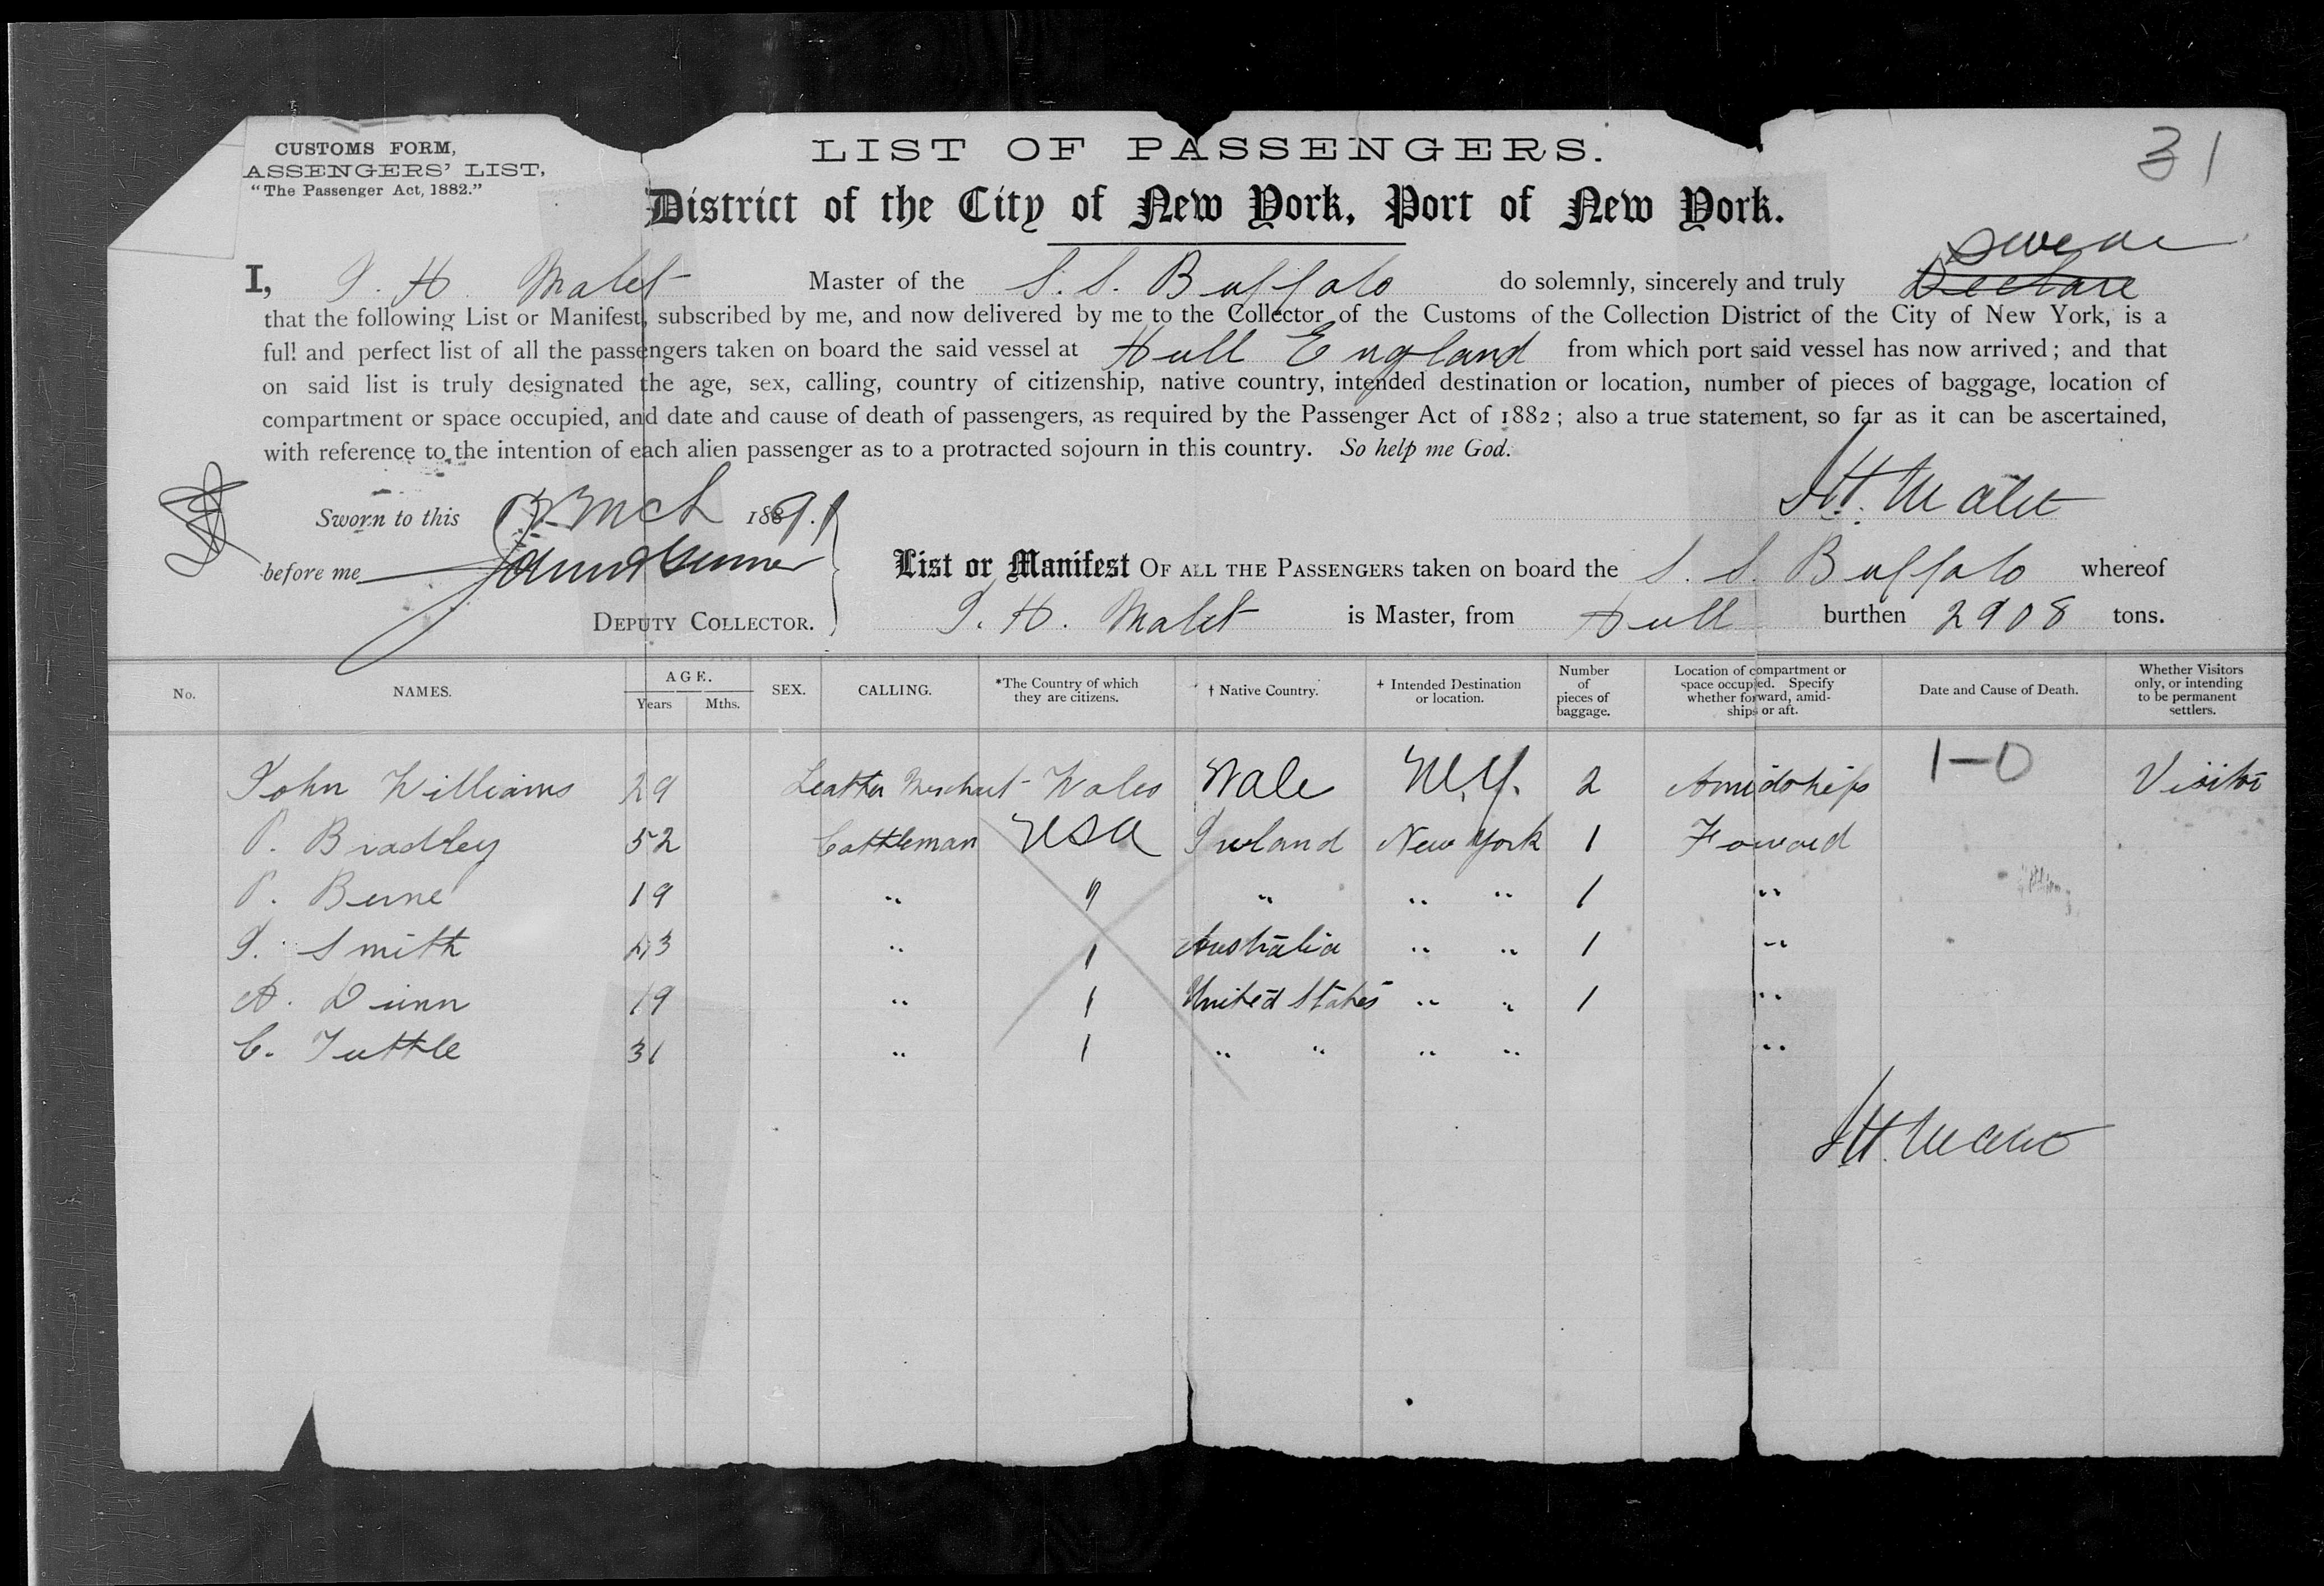 31
CUSTOMS FORM,
ASSENGERS' LIST,
"The Passenger Act, 1882."
LIST OF PASSENGERS.
District of the City of New York, Port of New York.
swear
I, J. H. Malet Master of the S.S. Buffalo do solemnly, sincerely and truly Declare
that the following List or Manifest, subscribed by me, and now delivered by me to the Collector of the Customs of the Collection District of the City of New York, is a
full and perfect list of all the passengers taken on board the said vessel at Hull England from which port said vessel has now arrived; and that
on said list is truly designated the age, sex, calling, country of citizenship, native country, intended destination or location, number of pieces of baggage, location of
compartment or space occupied, and date and cause of death of passengers, as required by the Passenger Act of 1882; also a true statement, so far as it can be ascertained,
with reference to the intention of each alien passenger as to a protracted sojourn in this country. So help me God.
J.H. Malet
Sworn to this Mch 1891
before me
DEPUTY COLLECTOR.
List or Manifest OF ALL THE PASSENGERS taken on board the S. S. Buffalo whereof
J. H. Malet is Master, from Hull burthen 2908 tons.
No. NAMES. AGE. Years Mths. SEX. CALLING. *The Country of which they are citizens. † Native Country. + Intended Destination or location. Number of pieces of baggage. Location of compartment or space occupied. Specify whether forward, amid-ships or aft. Date and Cause of Death. Whether Visitors only, or intending to be permanent settlers.
1-0
John Williams 29 Leather Merchant Wales Wale N.Y. 2 Amidships Visitor
P. Bradley 52 Cattleman USA Ireland New York 1 Foward
P. Beirne 19 " " " " " 1 "
J. Smith 23 " " Australia " " 1 "
A. Dunn 19 " " United States " " 1 "
C. Tuttle 31 " " " " " " "
J.H. Malet